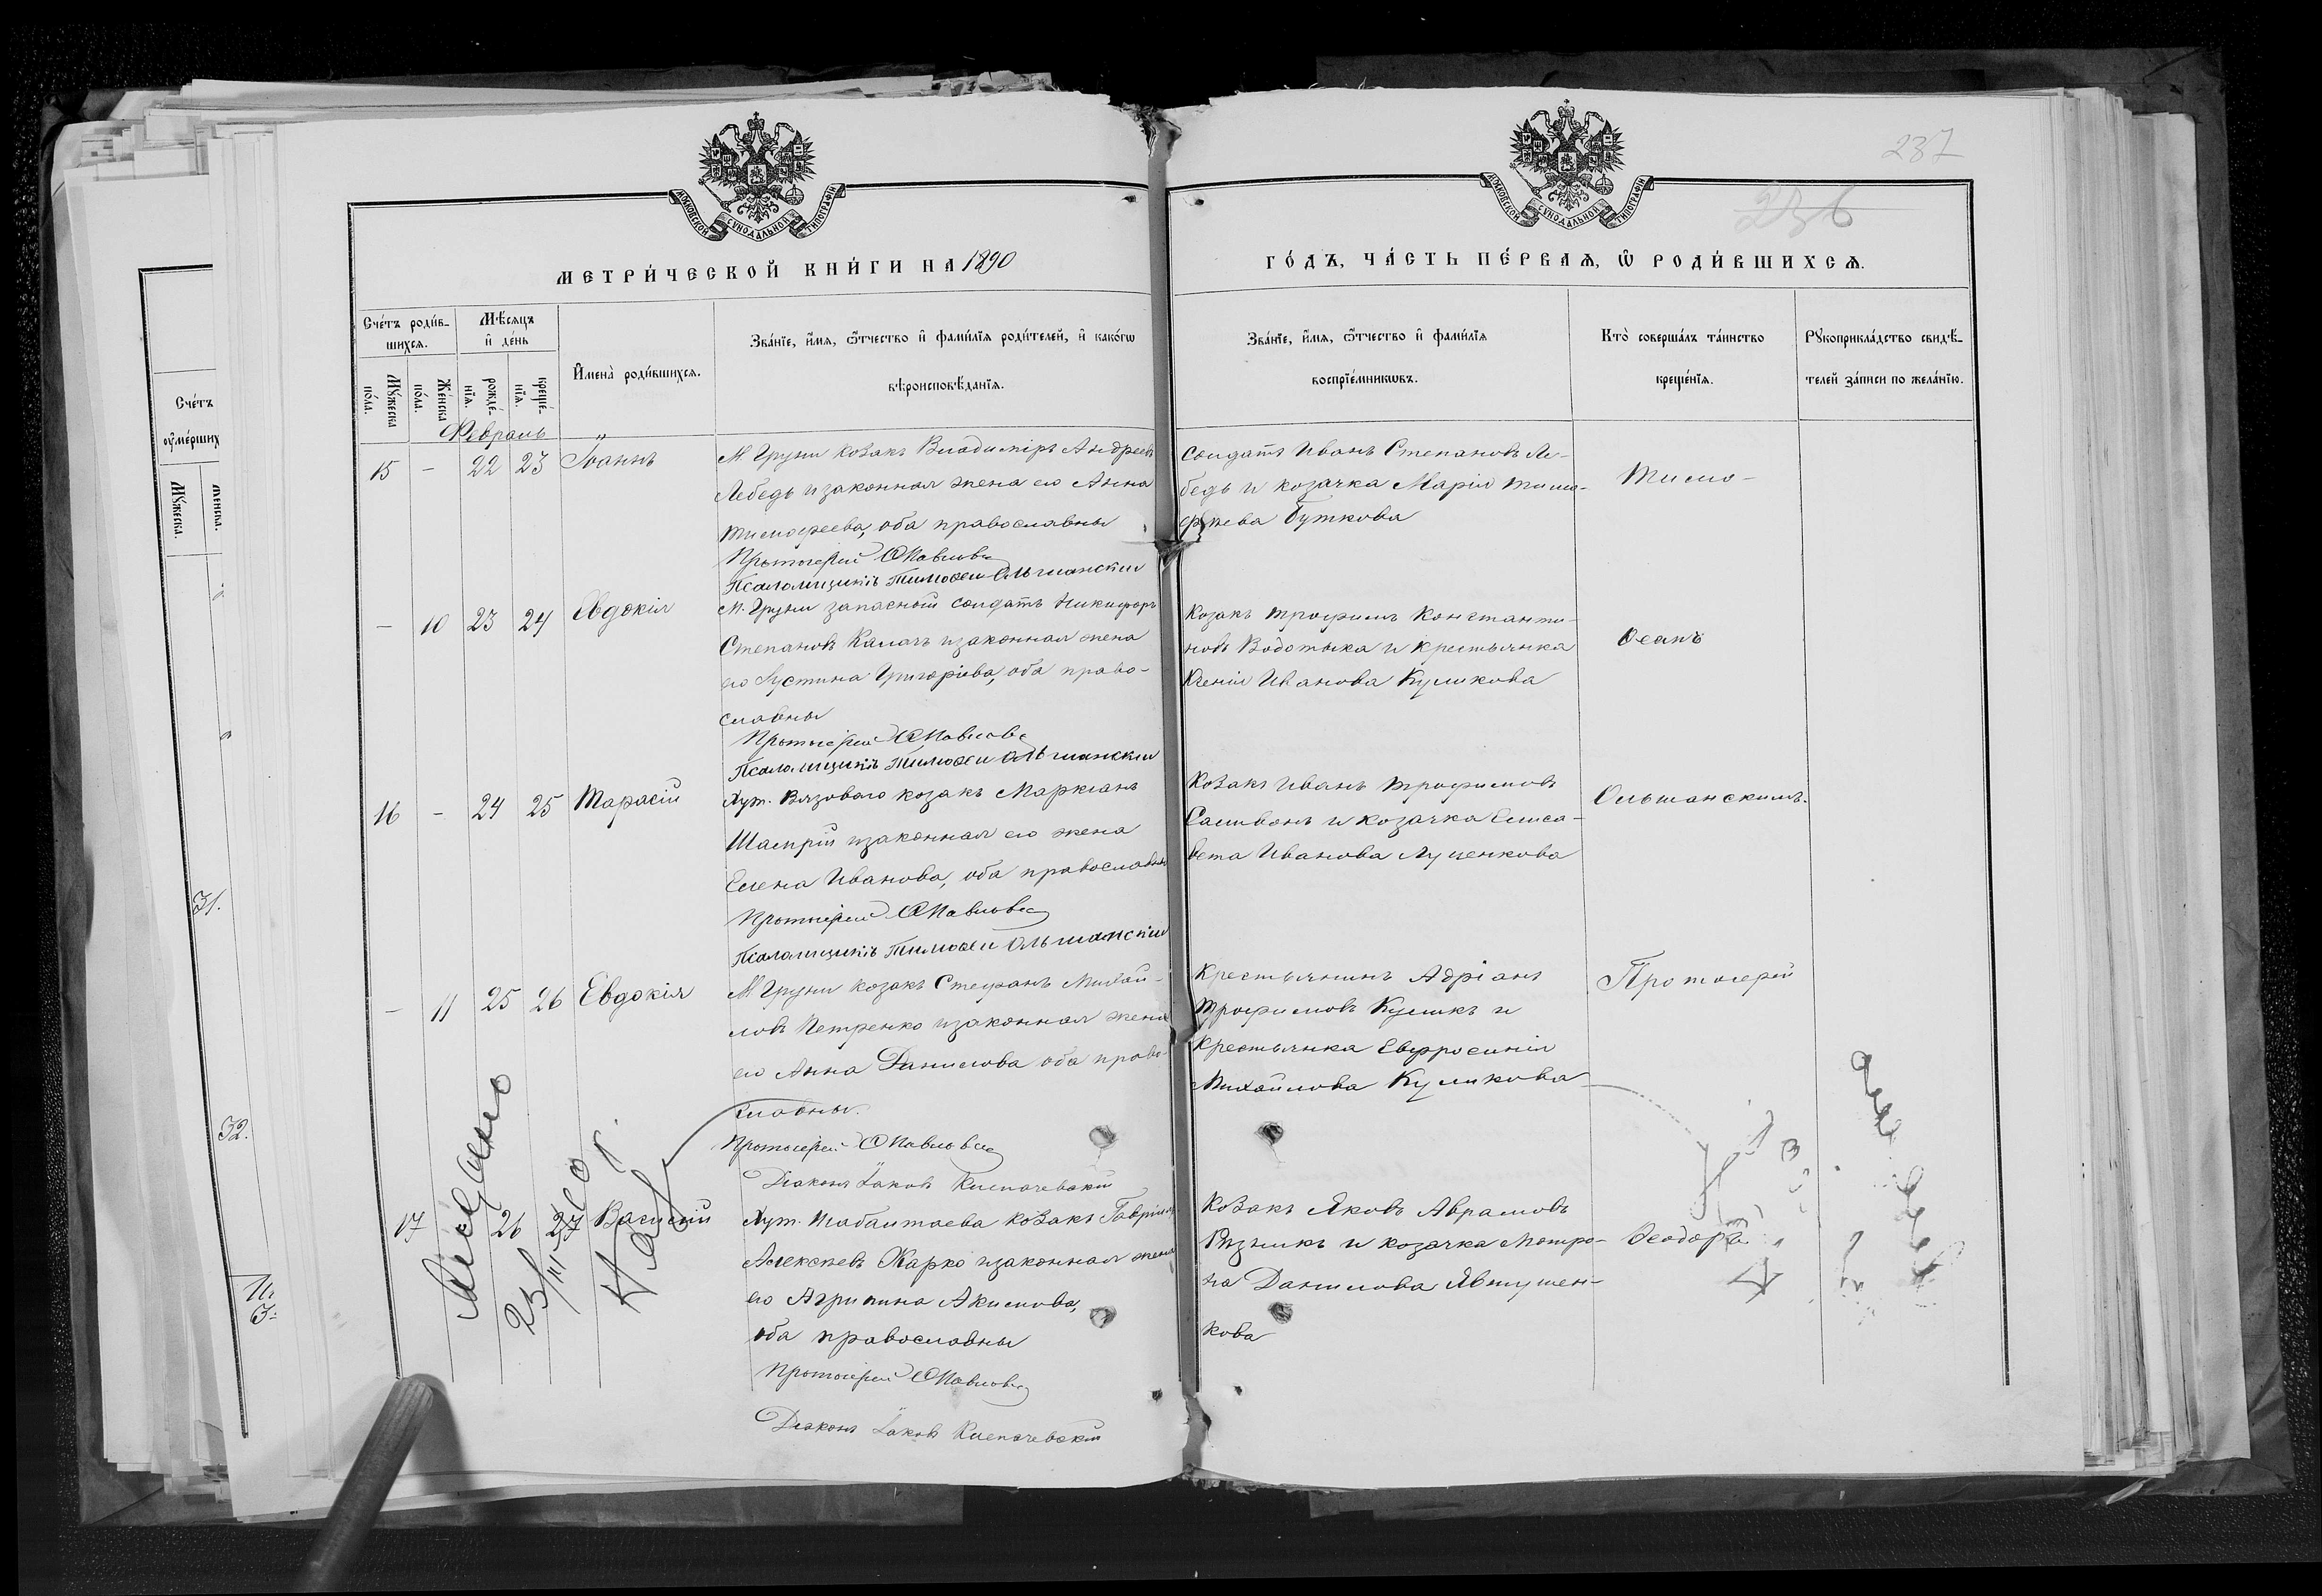 237
236
МОСКОВСКОЙ СѴНОДАЛЬНОЙ ТИПОГРАФІИ
МОСКОВСКОЙ СѴНОДАЛЬНОЙ ТИПОГРАФІИ
МЕТРИ́ЧЕСКОЙ КНИ́ГИ НА 1890
ГО́ДЪ, ЧА́СТЬ ПЕ́РВАѦ, Ѡ҆ РОДИ́ВШИХСѦ.
Сче́тъ роди́в-
шихсѧ.
Мѣ́сѧцъ
и҆ де́нь
Мꙋ́жеска
по́ла.
Же́нска
по́ла.
рожде́-
нїѧ.
креще́-
нїѧ.
И҆мена̀ роди́вшихсѧ.
Зва́нїе, и҆́мѧ, ѻ҆́тчество и҆ фами́лїѧ роди́телей, и҆ како́гѡ
вѣроисповѣ́данїѧ.
Зва́нїе, и҆́мѧ, ѻ҆́тчество и҆ фами́лїѧ
воспрїе́мникѡвъ.
Кто̀ соверша́лъ та́инство
креще́нїѧ.
Рꙋкоприкла́дство свидѣ́-
телей за́писи по жела́нїю.
Сче́тъ
ᲂу҆ме́рших
Мꙋ́жеска.
Же́нска.
31.
32.
Февраль
15 - 22 23 Іоаннъ
М Груни козакъ Владиміръ Андреевъ
Лебедь и законная жена его Анна
Тимофеева, оба православны
Протоіерей Ѳ Павловъ
Псаломщикъ Тимоѳей Ольшанскій
Солдатъ Иванъ Степановъ Ле-
бедь и козачка Марія Тимо-
фѣева Буткова
Тимо-
- 10 23 24 Евдокія
М. Груни запасный солдатъ Никифоръ
Степановъ Калачъ и законная жена
его Іустина Григоріева, оба право-
славны
Протоіерей Ѳ Павловъ
Псаломщикъ Тимоѳей Ольшанскій
Козакъ Трофимъ Константи-
новъ Водотыка и крестьянка
Ксенія Иванова Куликова
Ѳеемъ
16 - 24 25 Тарасій
Хут. Вязоваго козакъ Маркіанъ
и законная его жена
Елена Иванова, оба православны
Протоіерей Ѳ Павловъ
Псаломщикъ Тимоѳей Ольшанскій
Козакъ Иванъ Трофимовъ
Саливонъ и козачка Елиса-
вета Иванова Луценкова
Ольшанскимъ.
- 11 25 26 Евдокія
М Груни козакъ Стефанъ Михай-
ловъ Петренко и законная жена
его Анна Данилова оба право-
славны.
Протоіерей Ѳ Павловъ
Діаконъ Іаковъ Клепачевскій
Крестьянинъ Адріанъ
Трофимовъ Куликъ и
крестьянка Евфросинія
Михайлова Куликова
Протоіерей
17 26 27 Василій
Хут. козакъ Гавріилъ
Алексѣевъ Жарко и законная жена
его Агрипина Акимова,
оба православны
Протоіерей Ѳ Павловъ
Діаконъ Іаковъ Клепачевскій
Козакъ Яковъ Аврамовъ
Рѣзникъ и козачка Мотро-
на Данилова Явтушен-
кова
Ѳеодоръ